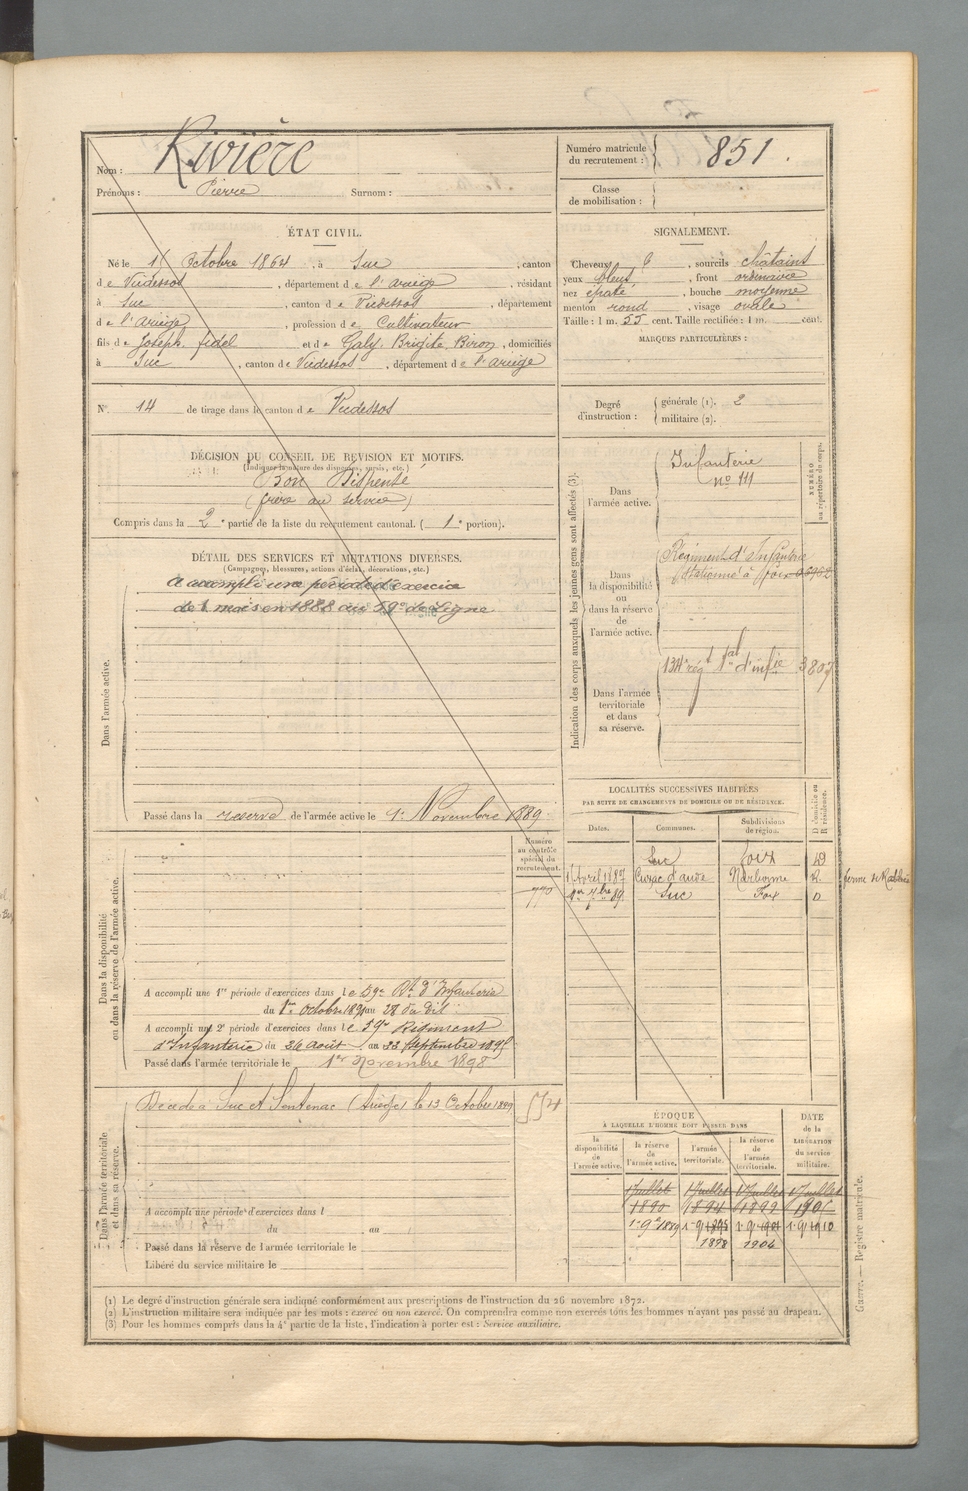 Nom : Rivière
Prénoms : Pierre Surnom :
Numéro matricule du recrutement : 851.
Classe de mobilisation :
ÉTAT CIVIL.
Né le Octobre 1864, à Suc, canton
de Vicdessos, département de l'ariège, résidant
à Suc, canton de Vicdessos, département
de l'ariège, profession de Cultivateur
fils de Joseph, fidel et de Galy, Brigite, Biron, domiciliés
à Suc, canton de Vicdessos, département de l'ariège
N° 14 de tirage dans le canton de Vicdessos
SIGNALEMENT.
Cheveux, sourcils châtains
yeux bleus, front ordinaire
nez épaté, bouche moyenne
menton rond, visage ovale
Taille : 1 m. 55 cent. Taille rectifiée : 1 m. cent.
MARQUES PARTICULIÈRES :
Degré d'instruction : générale (1). 2
militaire (2).
DÉCISION DU CONSEIL DE REVISION ET MOTIFS.
(Indiquer la nature des dispenses, sursis, etc.)
Bon Dispensé
(frère au service)
Compris dans la 2e partie de la liste du recrutement cantonal. (1e portion).
DÉTAIL DES SERVICES ET MUTATIONS DIVERSES.
(Campagnes, blessures, actions d'éclat, décorations, etc.)
Dans l'armée active.
A accompli une période d'exercice
de 1 mois en 1888 au 59e de Ligne
Passé dans la reserve de l'armée active le 1er Novembre 1889
Indication des corps auxquels les jeunes gens sont affectés (3).
NUMÉRO au répertoire du corps.
Dans l'armée active.
Infanterie
no 111
Dans la disponibilité ou dans la réserve de l'armée active.
Régiment d'Infanterie
stationné à Foix
Dans l'armée territoriale et dans sa réserve.
134e régt tal d'infie 3807
LOCALITÉS SUCCESSIVES HABITÉES
PAR SUITE DE CHANGEMENTS DE DOMICILE OU DE RÉSIDENCE.
Dates. Communes. Subdivisions de région. D domicile ou R résidence.
Suc Foix D
1 Avril 1887 Cuxac d'aude Narbonne R
1er 7bre 89 Suc Foix D
Dans la disponibilité ou dans la réserve de l'armée active.
Numéro au contrôle spécial du recrutement.
770
A accompli une 1re période d'exercices dans le 59e Rt d'Infanterie
du 1er octobre 1891 au 28 du dit
A accompli une 2e période d'exercices dans le 59e Régiment
d'Infanterie du 26 août au 22 septembre 1895
Passé dans l'armée territoriale le 1er Novembre 1898
Dans l'armée territoriale et dans sa réserve.
Décédé à Suc et Sentenac (Ariège) le 13 Octobre 1899
554
A accompli une période d'exercices dans l
du au
Passé dans la réserve de l'armée territoriale le
Libéré du service militaire le
ÉPOQUE
À LAQUELLE L'HOMME DOIT PASSER DANS
DATE de la LIBÉRATION du service militaire.
la disponibilité de l'armée active. la réserve de l'armée active. l'armée territoriale. la réserve de l'armée territoriale.
1 Juillet 1 Juillet 1 Juillet 1 Juillet
1890 1894 1899 1905
1er 9e 1889 1 9 1895 1 9 1901 1 9 1910
1898 1904
(1) Le degré d'instruction générale sera indiqué conformément aux prescriptions de l'instruction du 26 novembre 1872.
(2) L'instruction militaire sera indiquée par les mots : exercé ou non exercé. On comprendra comme non exercés tous les hommes n'ayant pas passé au drapeau.
(3) Pour les hommes compris dans la 4e partie de la liste, l'indication à porter est : Service auxiliaire.
Guerre. — Registre matricule.